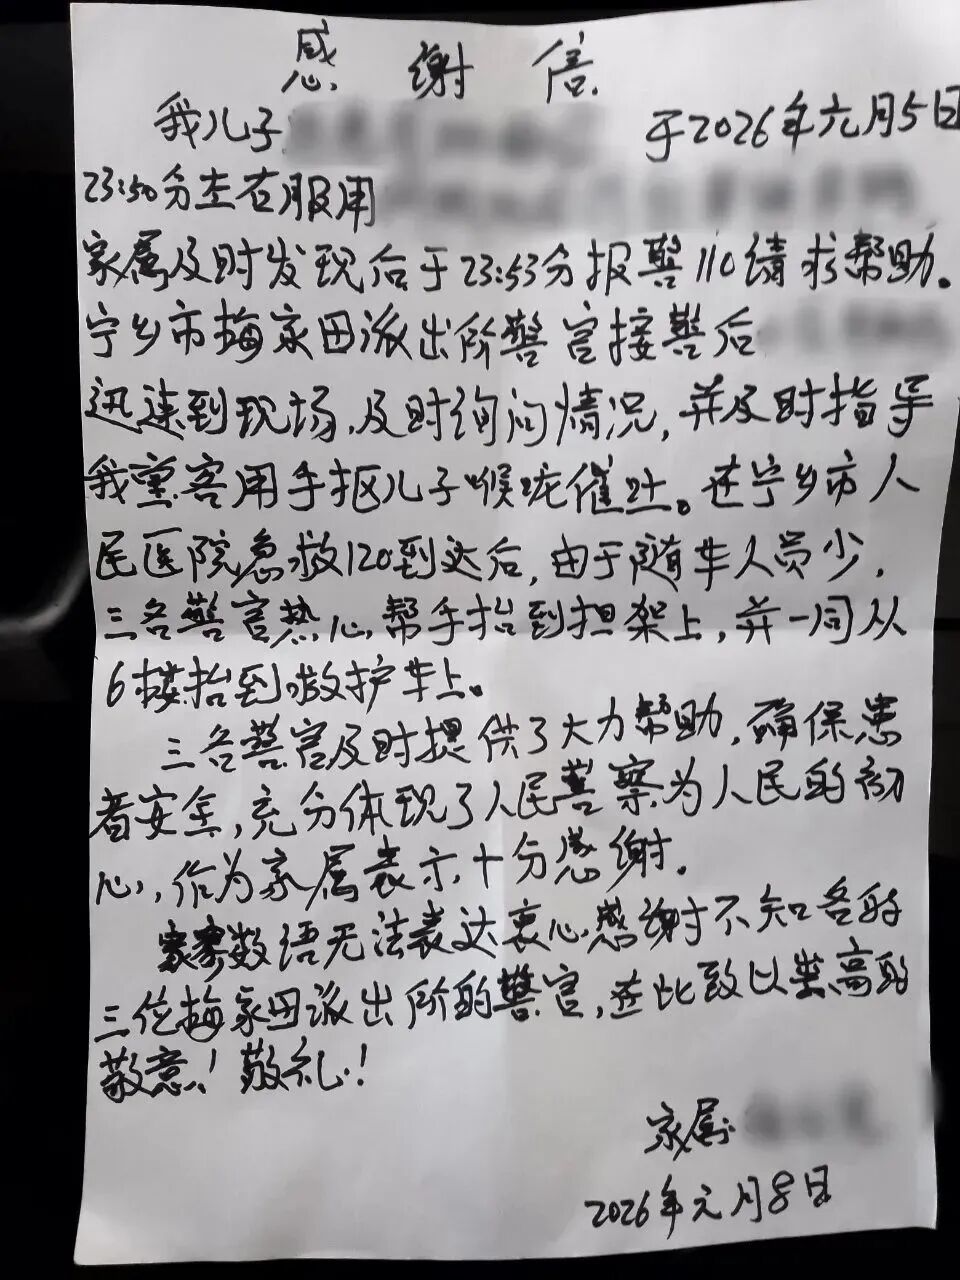 感谢信
我儿子 于2026年元月5日
23:50分左右服用
家属及时发现后于23:53分报警110请求帮助。
宁乡市梅家田派出所警官接警后
迅速到现场,及时询问情况,并及时指导
我妻客用手抠儿子喉咙催吐。在宁乡市人
民医院急救120到达后,由于随车人员少,
三名警官热心帮手抬到担架上,并一同从
6楼抬到救护车上。
三名警官及时提供了大力帮助,确保患
者安全,充分体现了人民警察为人民的初
心,作为家属表示十分感谢。
寥寥数语无法表达衷心感谢不知名的
三位梅家田派出所的警官,在此致以崇高的
敬意!敬礼!
家属:
2026年元月8日